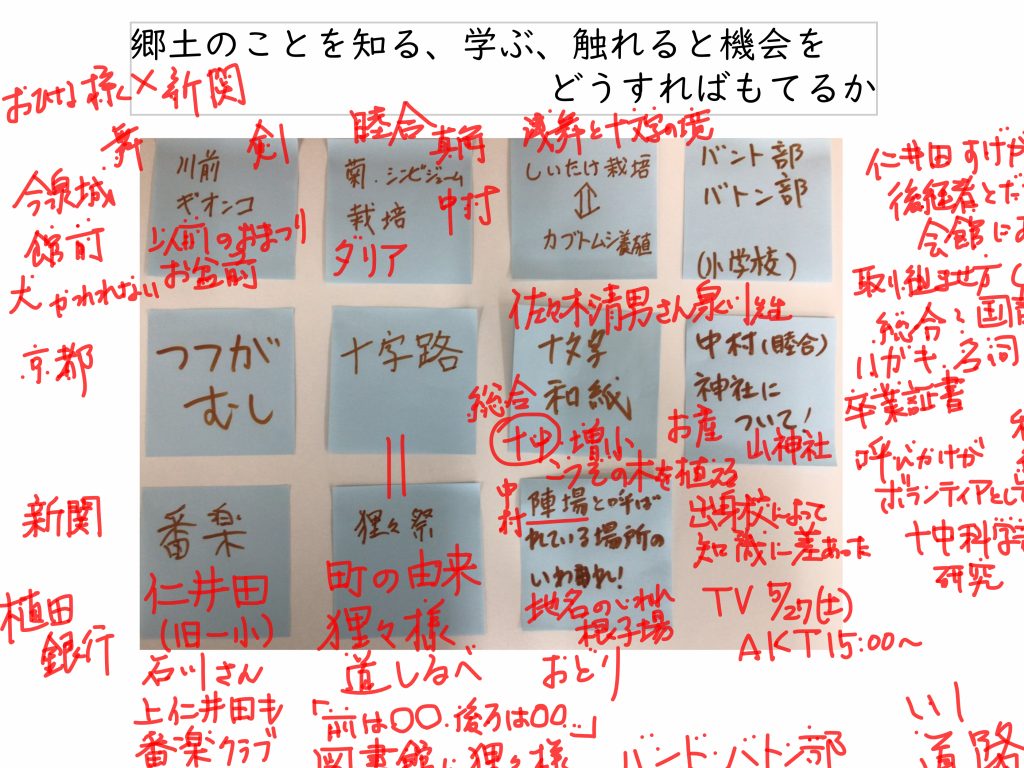 郷土のことを知る、学ぶ、触れると機会を
どうすればもてるか
おひな様×新関
舞
剣
睦合
真角
浅舞と十文字の境
今泉城
館前
犬 かわれない
京都
新関
植田
銀行
川前
ギオンコ
以前のおまつり
お盆前
菊・シンビジューム
栽培
中村
ダリア
しいたけ栽培
⇕
カブトムシ養殖
バント部
バトン部
(小学校)
佐々木清男さん
つつが
むし
十字路
十文字
和紙
総合
十中・増小
こうその木を植える
中村(睦合)
神社に
ついて!
お産
山神社
番楽
仁井田
(旧一小)
石川さん
上仁井田も
番楽クラブ
猩々祭
町の由来
猩々様
道しるべ
「前は〇〇・後ろは〇〇…」
図書館に猩々様
中村
陣場と呼ば
れている場所の
いわれ!
地名のいわれ
根子場
おどり
出身校によって
知識に差あった
TV 5/27(土)
AKT15:00～
バンド・バトン部
仁井田すげが
後継者とだ
会館にあ
総合と国語
ハガキ、名詞
卒業証書
呼びかけが
ボランティアとして
十中科学
研究
道路